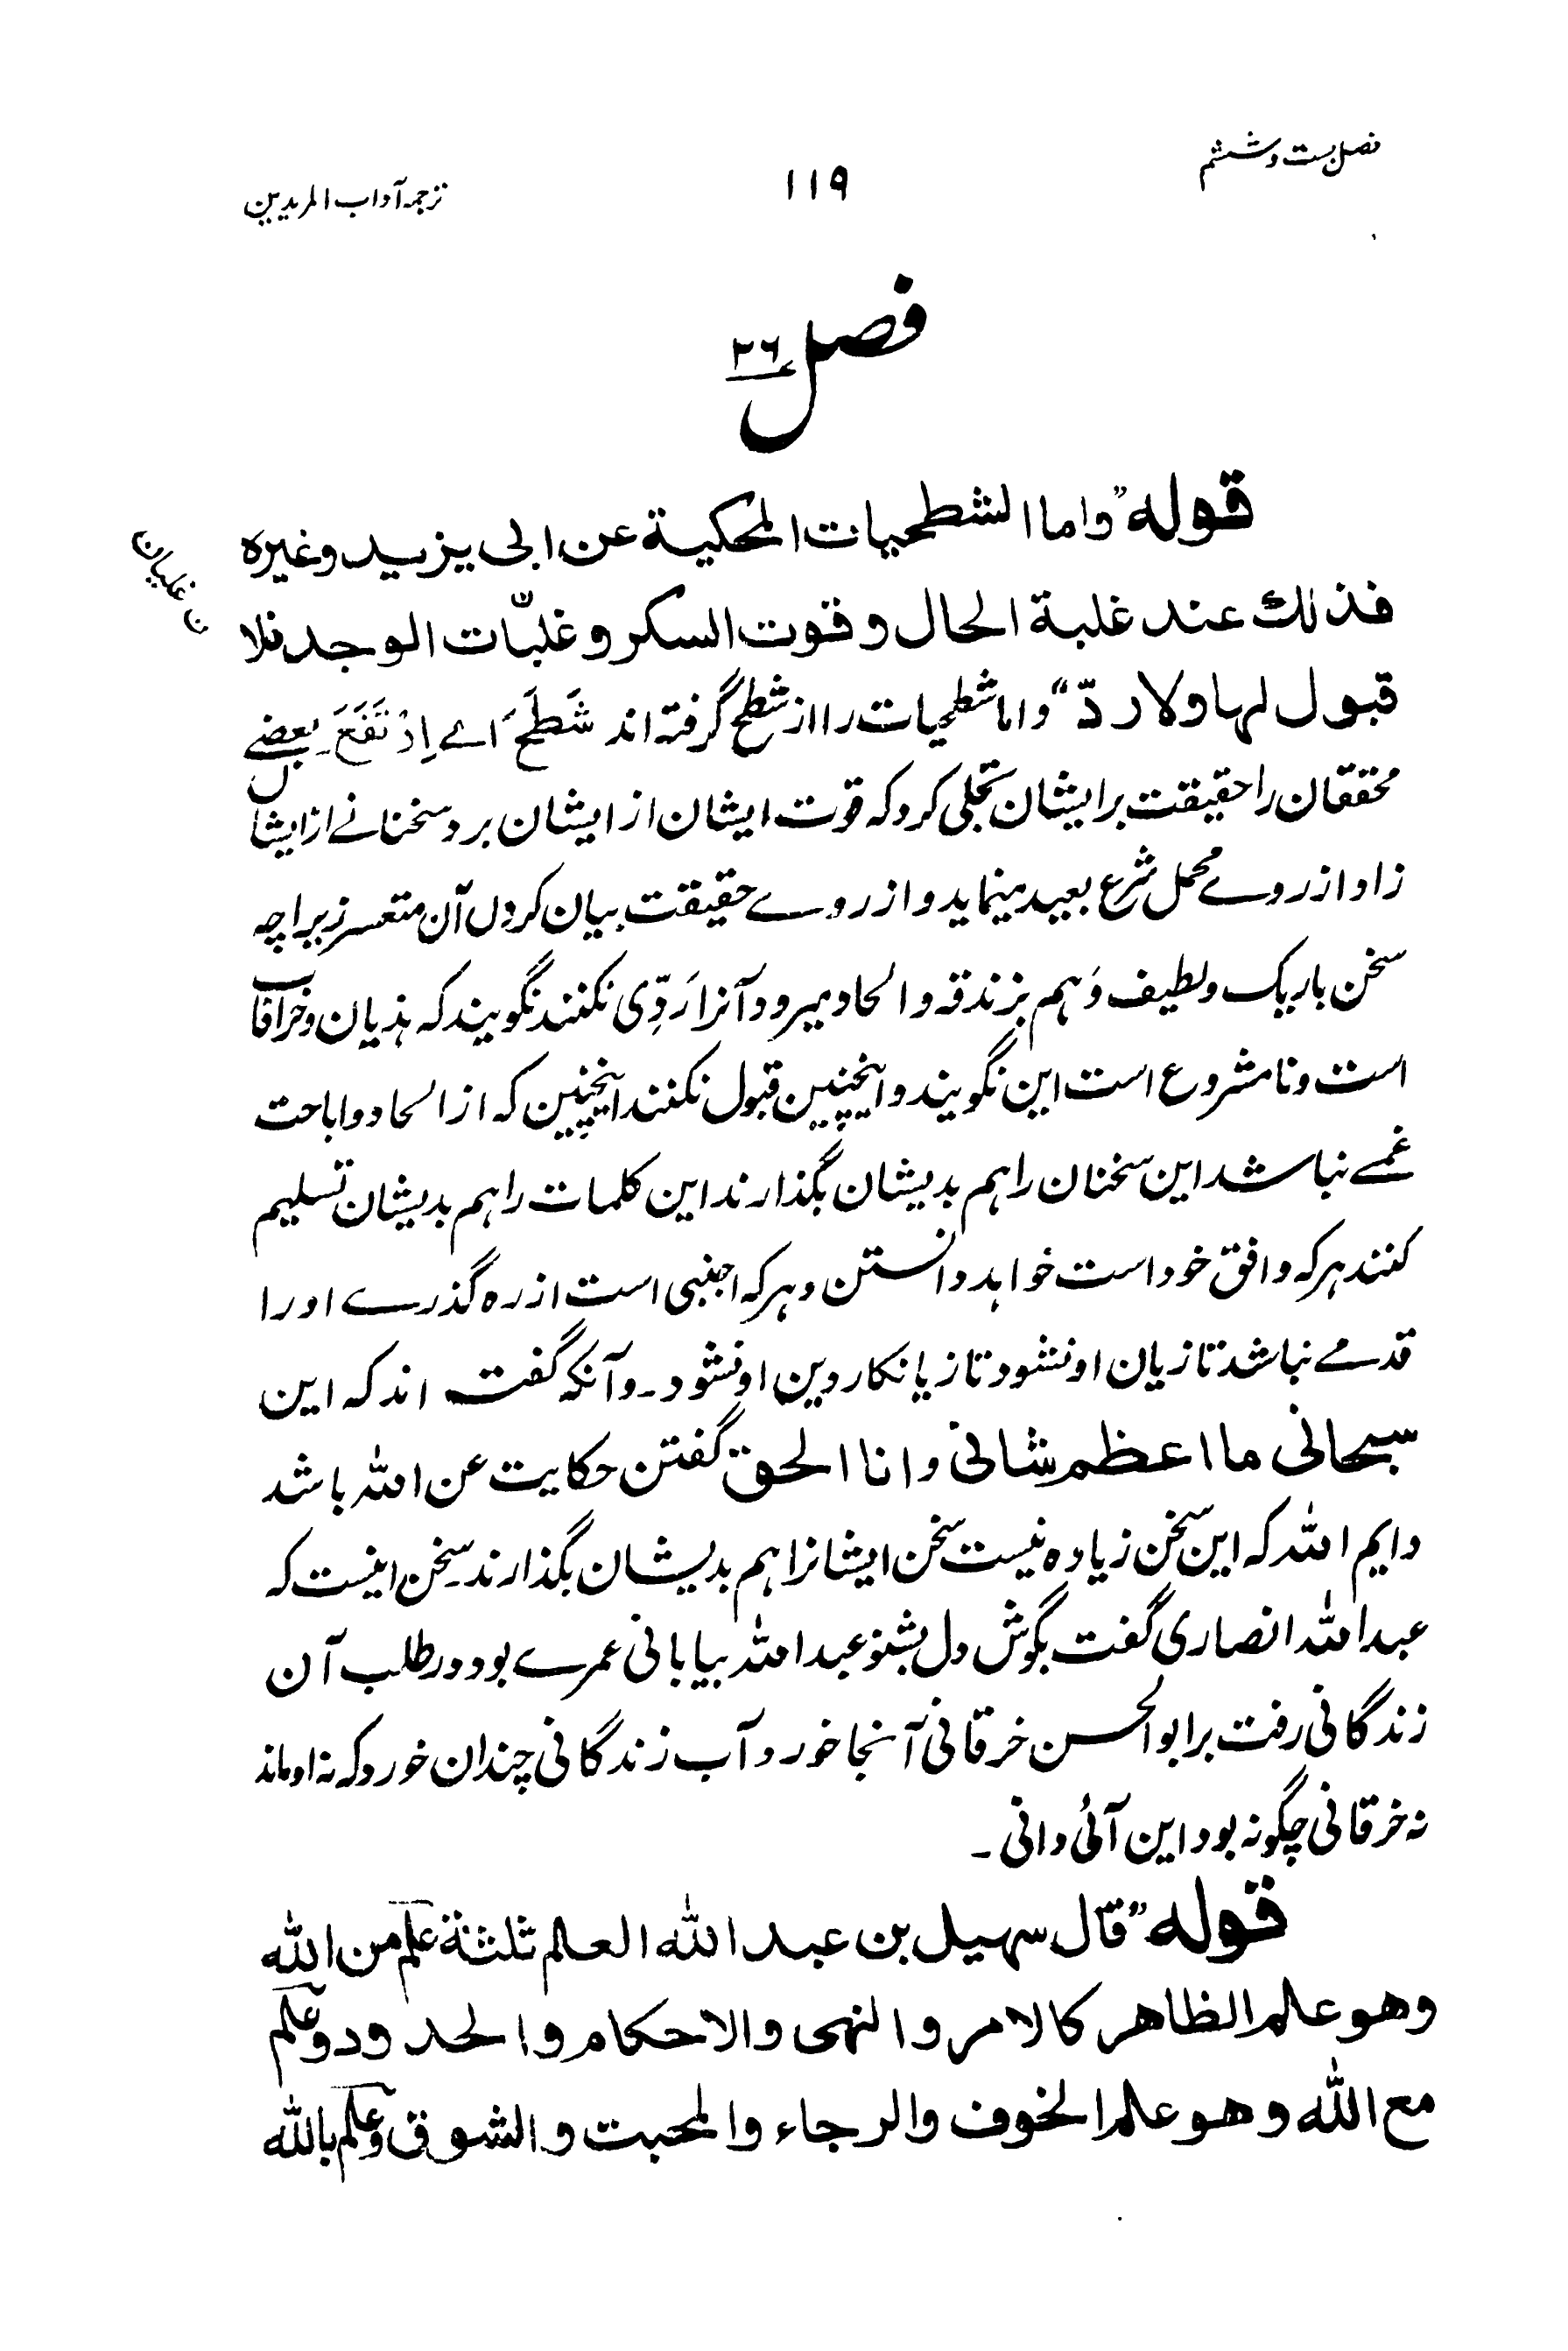 فصل بست و ششم
۱۱۹
ترجمہ آداب المریدین
فصل ۲۶
قوله ”واما الشطحیات المحکیة عن ابی یزید وغیره
فذلك عند غلبة الحال و قوت السکر و غلبّات الوجد فلا
ن غلیان
قبول لها ولا ردّ“ واما شطحیات را از شطح گرفته اند شَطَحَ اے اِرْتَفَعَ۔ بعضے
محققان را حقیقت بر ایشان تجلی کرد که قوت ایشان از ایشان برد سخنانے از ایشاں
زاد از روے محمل شرع بعید مینماید و از روے حقیقت بیان کردن آن متعسر زیراچه
سخن باریک و لطیف وَہم بزندقه و الحاد میرود و آنرا رَدّی نکنند نگویند که ہذیان و خرافات
است و نا مشروع است این نگویند و اینچنین قبول نکنند اینچنین که از الحاد و اباحت
غمے نباشد این سخنان را ہم بدیشان بگذارند این کلمات را ہم بدیشان تسلیم
کنند ہر که وافق خود است خواہد دانستن و ہر که اجنبی است از ره گذرے او را
قدمے نباشد تا زیان او نشود تا زیانکار دین او نشود۔ و آنکه گفته اند که این
سبحانی ما اعظم شانی و انا الحق گفتن حکایت عن اللہ باشد
وایم اللہ که این سخن زیاده نیست سخن ایشانرا ہم بدیشان بگذارند۔ سخن اینست که
عبداللہ انصاری گفت بگوش دل بشنو عبداللہ بیابانی عمرے بود در طلب آن
زندگانی رفت بر ابوالحسن خرقانی آنجا خورد آب زندگانی چندان خورد که نه او ماند
نه خرقانی چگونه بود این آئی دانی۔
قوله ”قال سهیل بن عبد الله العلم ثلثة علم من الله
وهو علم الظاهر کالامر والنهی والاحکام والحدود وعلم
مع الله وهو علم الخوف والرجاء والمحبت والشوق وعلم بالله